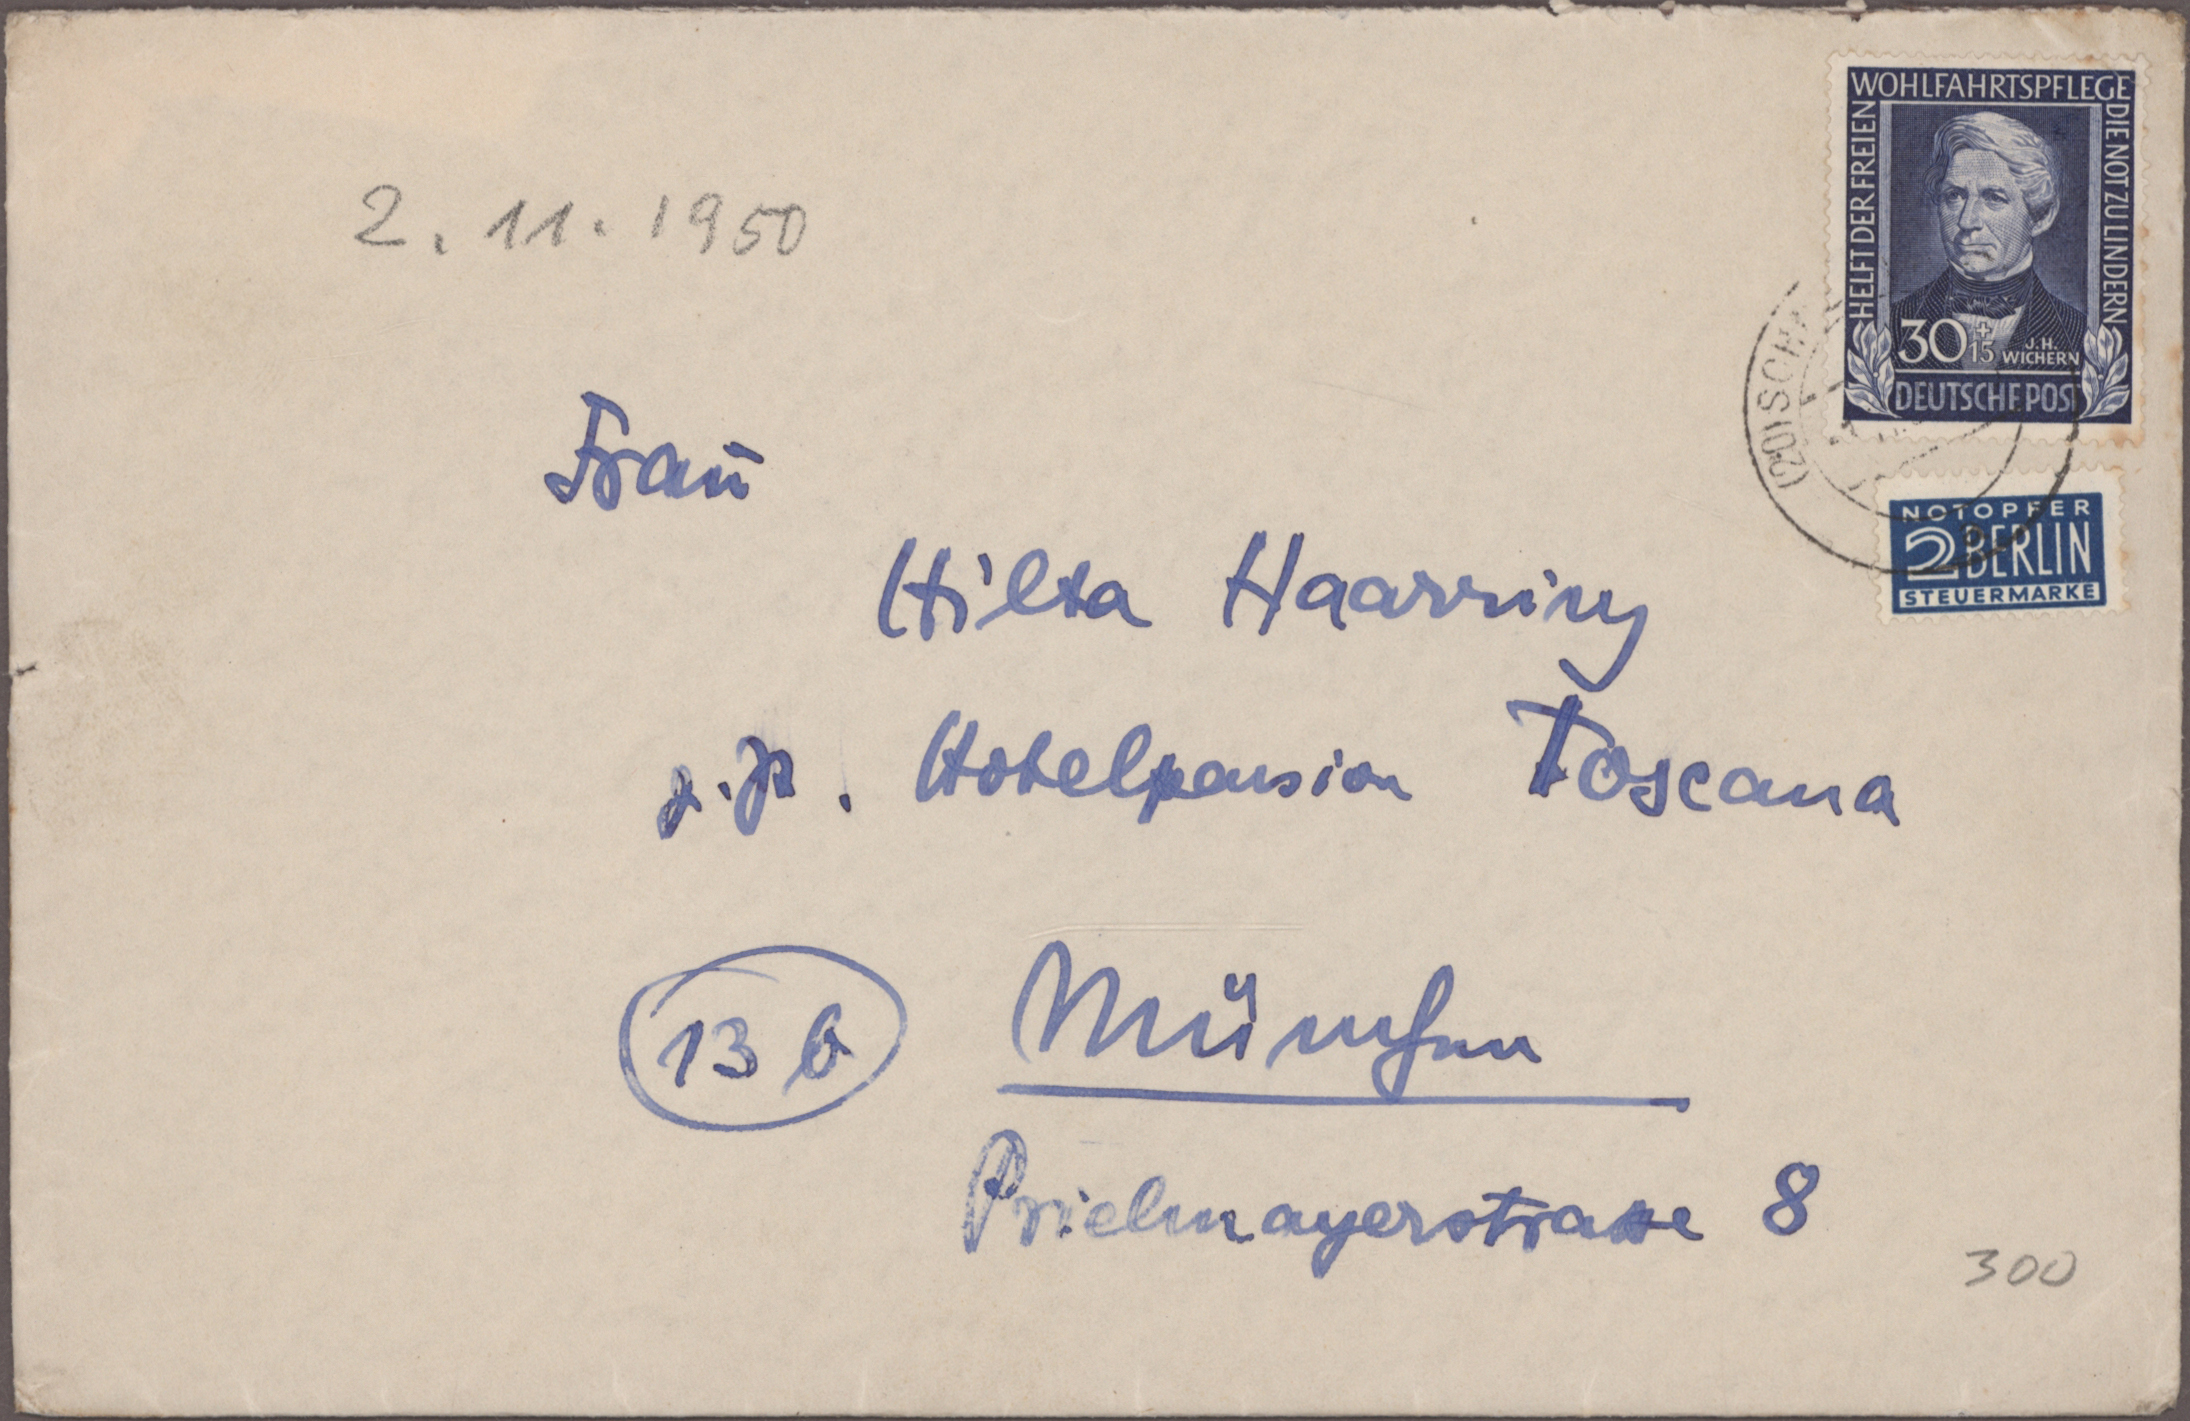 2. 11. 1950
WOHLFAHRTSPFLEGE
HELFT DER FREIEN
DIE NOT ZU LINDERN
30 + 15
J.H. WICHERN
DEUTSCHE POST
NOTOPFER
2 BERLIN
STEUERMARKE
Frau
Haarring
Hotelpension Toscana
13 b München
Prielmayerstrasse 8
300